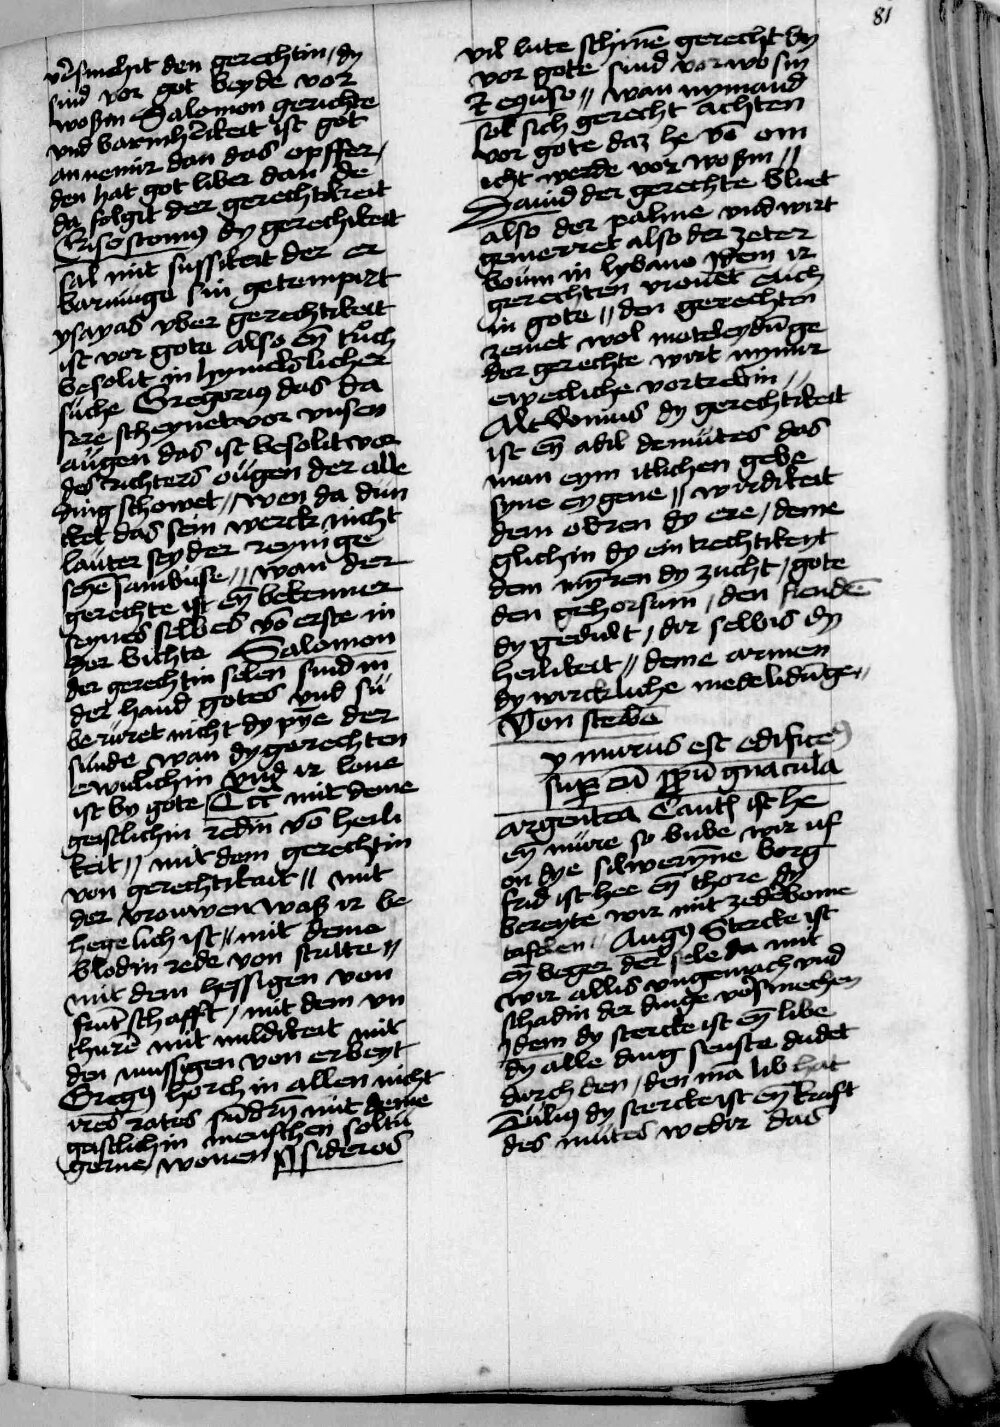 81
v̄smehit den gerechtin / dy
sind vor got beyde vor
woßin Salomon gerichte
vnd barmh̄tikeit ist got
annemir dan das opffer /
den hat got liber dan de
da folgit der gerechtikeit
Crisostomꝰ dy gerechikeit
sal mit sussikeit der er
barmūge sin getempirt
ysayas vber gerechtikeit
ist vor gote also eȳ tůch
besolit in hymelslicher
suche Gregoriꝰ das da
sere scheynet vor vnsen
augen das ist besolit vor
des richters ougen der alle
ding schowet // wen da dun
ket das sein werck nicht
lauter sey der reynige
wan der
gerechte ist eȳ bekenner
seynes selbes vō erste in
der bichte Salomon
der gerechtin selen sind in
der hand gotes vnd sü
berüret nicht dy pyē der
sunde wan dy gerechten
ewiclichin vnd ir lone
ist by gote Ecc̄ mit deme
geistlichin redin vō heili
keit // mit dem gerechtin
von gerechtikait // mit
der vrouwen waß ir be
hegelich ist // mit deme
blodin rede von strite //
mit dem hessigen von
frūtschafft / mit dem vn
thurē mit mildikeit mit
den mussigen von erbeyt
Gregꝰ horch in allen nicht
ires rates sūdrȳ mit deme
gastlichin menschen soltu
gerne wonen
vil lute schinē gerecht by
vor gote sind vorwosin
wan nymand
sol sich gerecht achten
vor gote daz he vō om
icht werde vorwoßin //
Dauid der gerechte bluet
also der palme vnd wirt
gemerret also der zeter
boum in lybano Idem ir
gerechten vrouet euch
in gote // den gerechten
zemet wol meteleydūge
der gerechte wirt nymir
ewecliche vortrebin //
dy gerechtikeit
ist eȳ adil demutes das
man eym itlichen gebe
syne eygene // wirdikeit
dem obren dy ere / deme
glichin dy eintrechtikeyt
dem mȳren dy zucht / gote
den gehorsam / den fiendē
dy gedult / dir selbis dy
heilikeit // deme armen
dy wirckliche medelidūge //
Von sterke
murus est edificeꝰ
supꝑ eū ꝓpugnacula
argentea Cantꝭ ist he
eȳ mure so buwe wir uf
on dye silwerynne borg
frid ist hee eȳ thore dy
bereyte wir mit zederbome
taffelen // Augꝰ Stercke ist
eȳ beger der sele da mit
wir allis vngemach vnd
schadin der dinge vorsmechen
Idem dy stercke ist eȳ libe
dy alle ding senfte dudet
durch den / den mā lib hat
Tuliꝰ dy stercke ist eȳ kraft
des mutes weder das